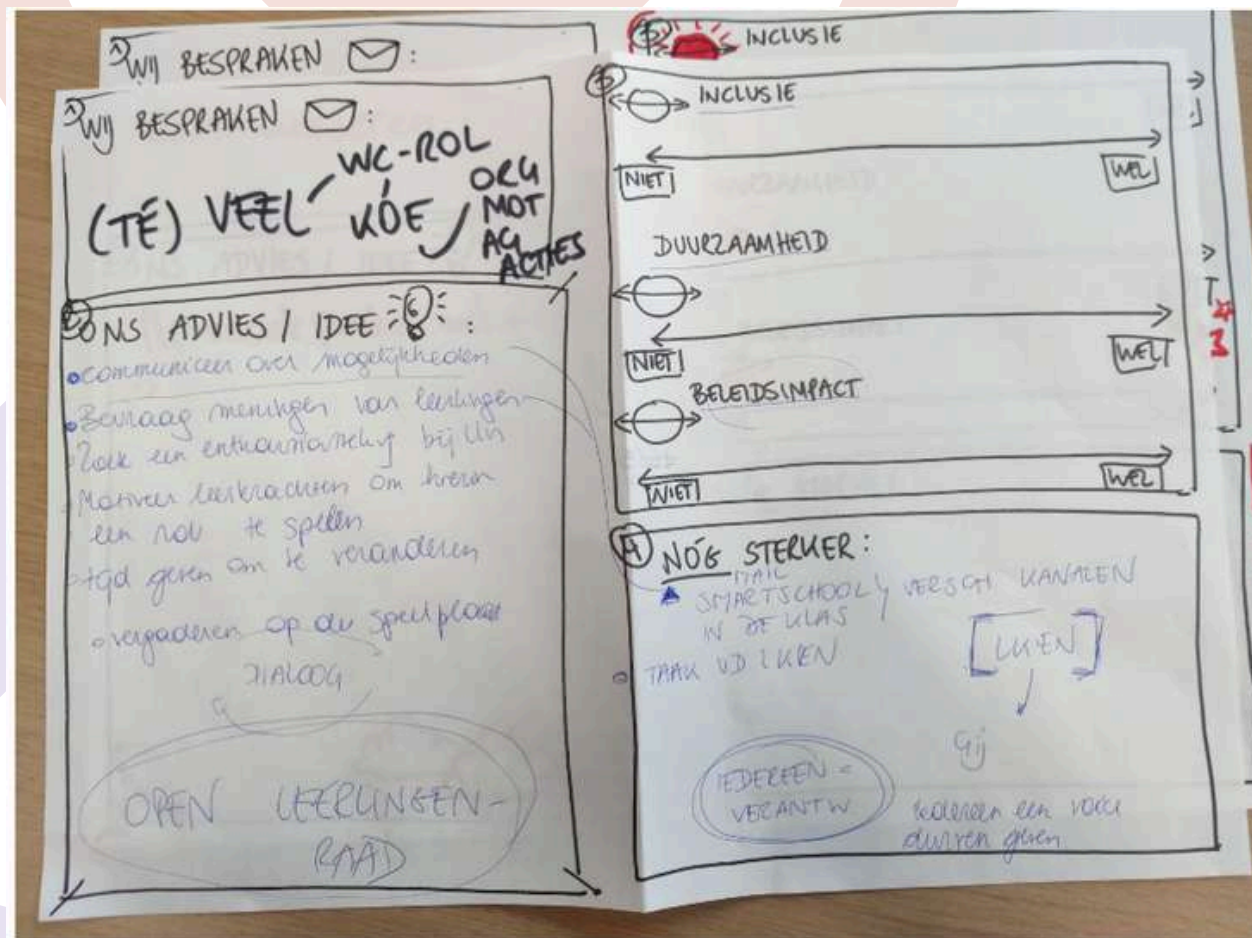 1) WIJ BESPRAKEN :
1) WIJ BESPRAKEN :
(TÉ) VEEL
WC-ROL
KOE
ORG
MOT
AG
ACTIES
2) ONS ADVIES / IDEE :
communiceer over mogelijkheden
Bevraag meningen van leerlingen
Zoek een bij lln
Motiveer leerkrachten om hierin
een rol te spelen
tijd geven om te veranderen
vergaderen op de speelplaats
DIALOOG
OPEN LEERLINGEN-
RAAD
3) INCLUSIE
3) INCLUSIE
NIET WEL
DUURZAAMHEID
NIET WEL
BELEIDSIMPACT
NIET WEL
4) NÓG STERKER:
MAIL
SMARTSCHOOL VERSCH KANALEN
IN DE KLAS
TAAK VD LKEN
[LKEN]
Gij
IEDEREEN =
VERANTW
Iedereen een voice
durven geven